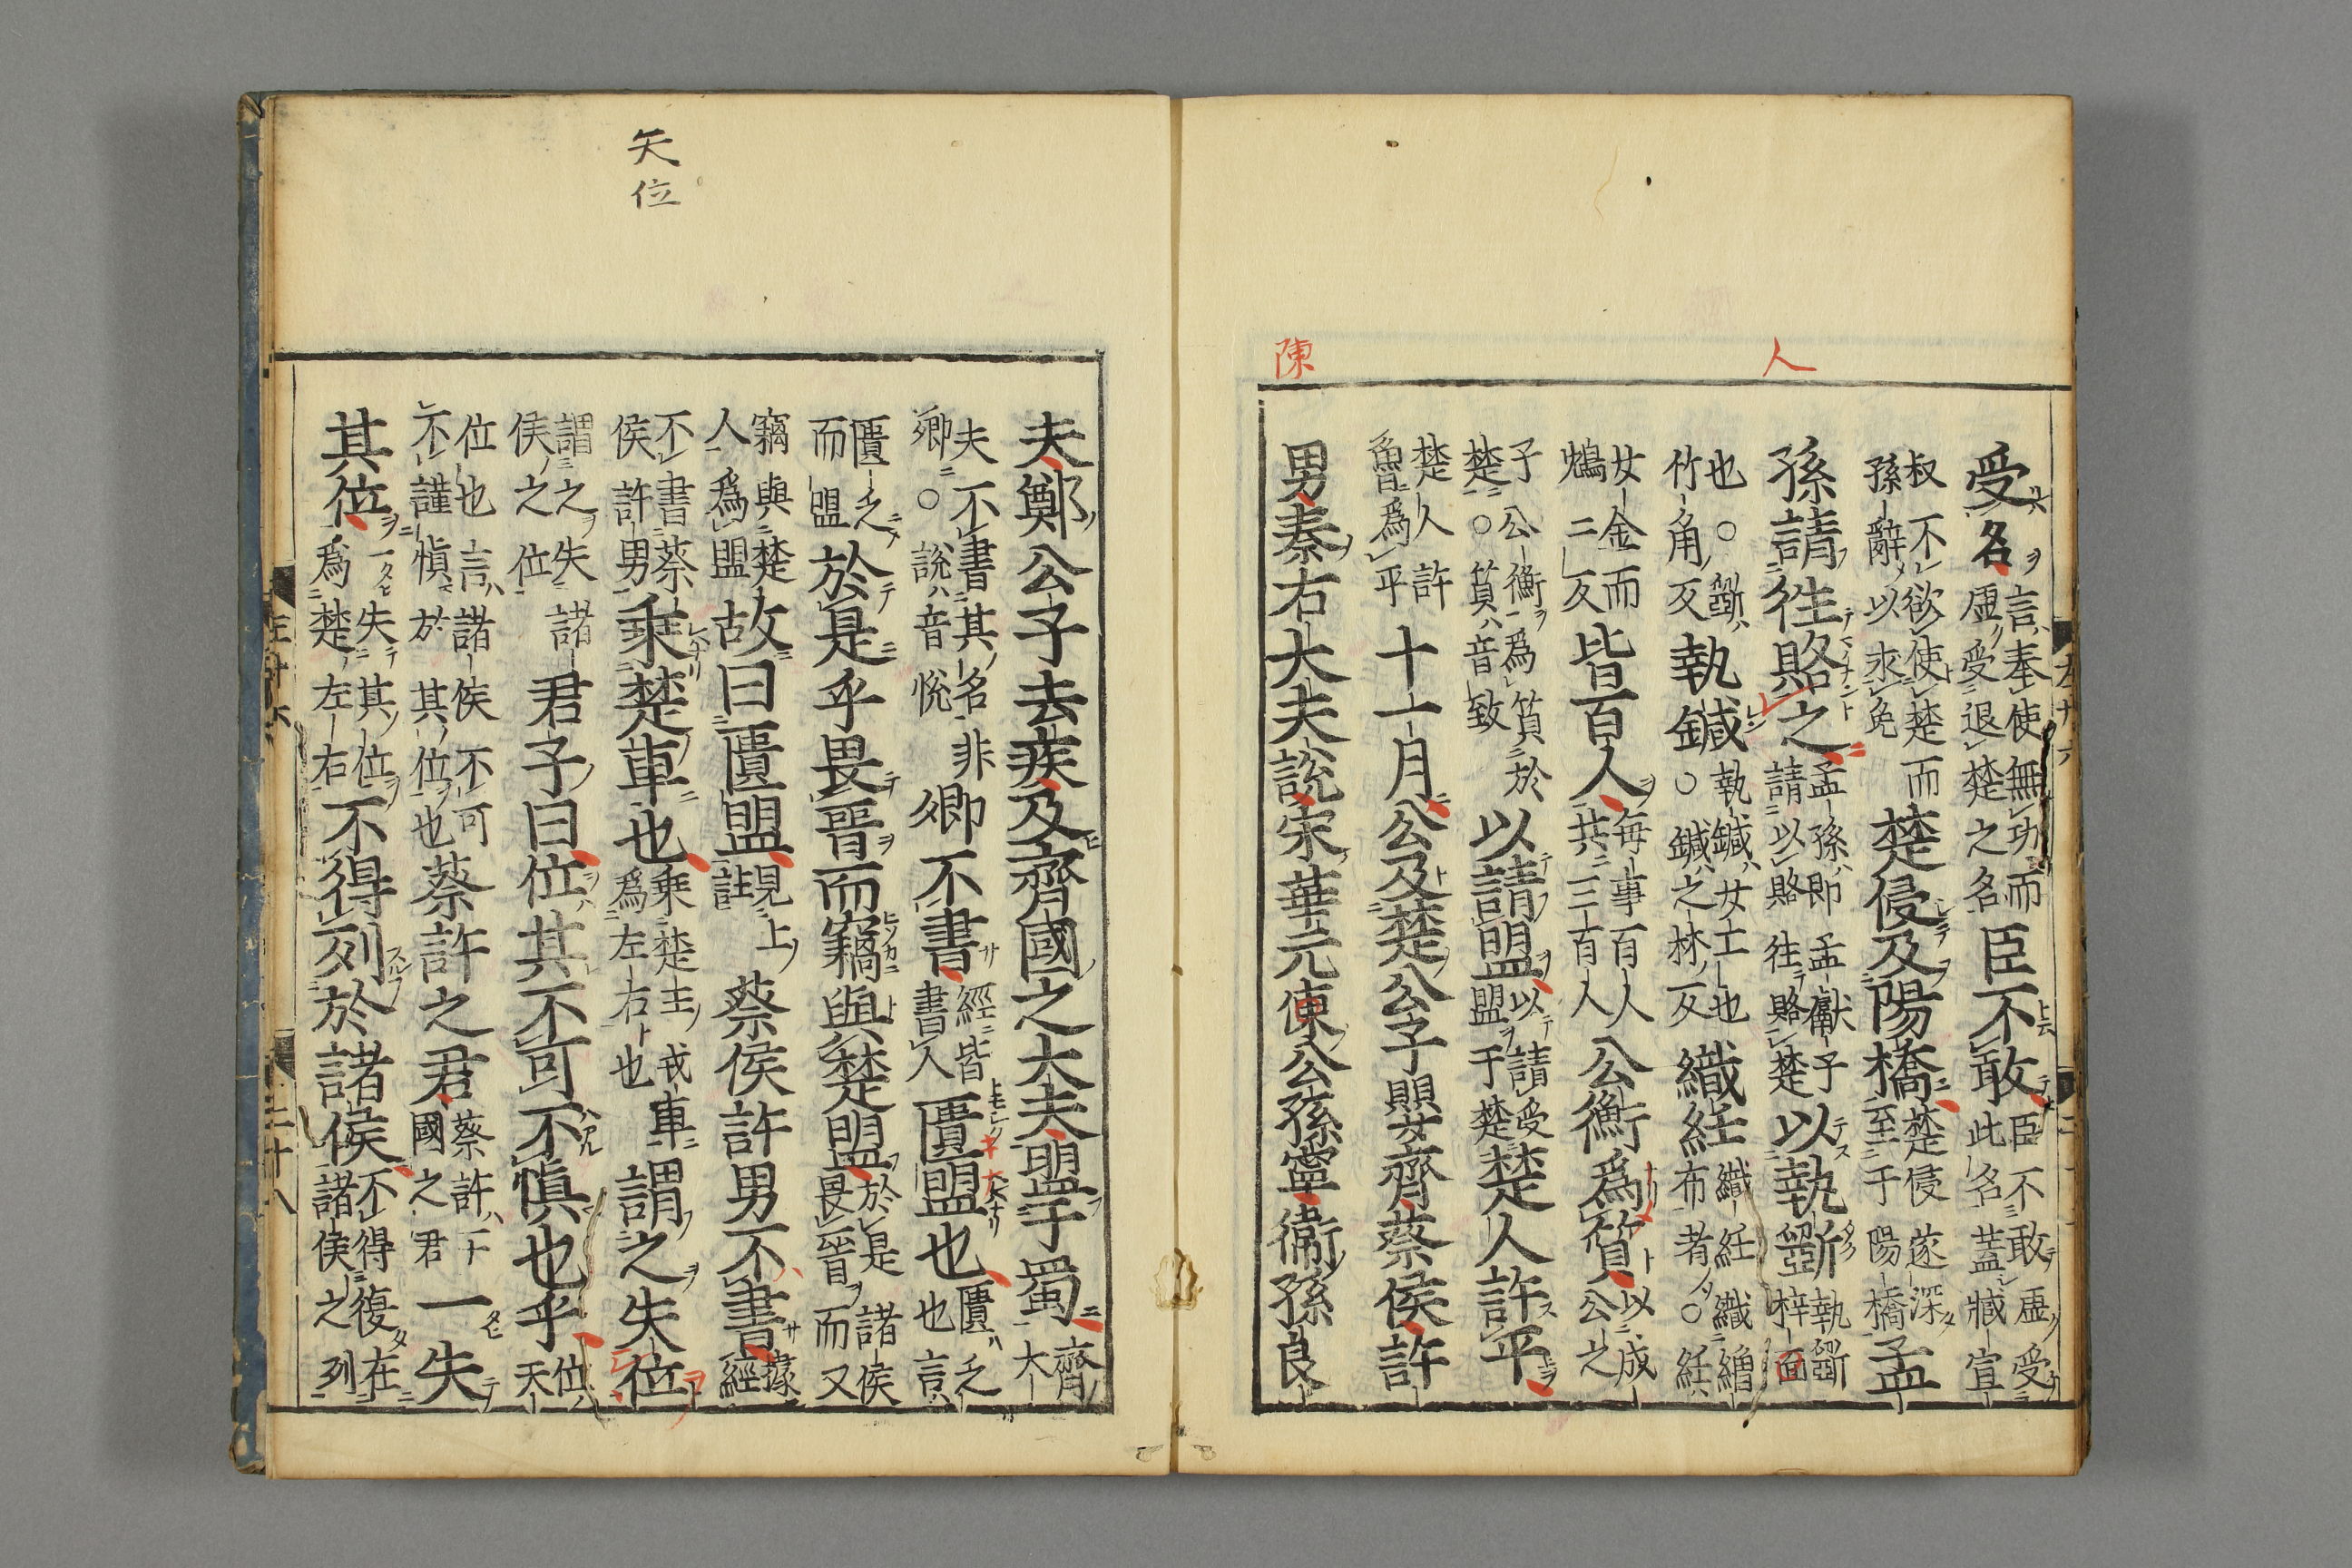 人
陳
受名言奉使無功而虛受退楚之名臣不敢臣不敢虛受此名蓋臧宣
叔不欲使楚而孫辭以求免楚侵及陽橋楚侵遂深至于陽橋孟
孫請往賂之孟孫即孟獻子請以賂往賂楚以執斲執斲梓面
也○斲竹角反執鍼○執鍼女工也鍼之林反織紝織紝織繒布者○紝
女金而鴆二反皆百人每事百人共三百人公衡為質以成公之
子公衡為質於楚○質音致以請盟以請受盟于楚楚人許平
楚人許魯為平十一月公及楚公子嬰齊蔡侯許
男秦右大夫說宋華元陳公孫寧衛孫良
夫鄭公子去疾及齊國之大夫盟于蜀齊大
夫不書其名非卿○說音悅卿不書經皆書人匱盟也匱乏也言
匱乏而盟於是乎畏晉而竊與楚盟於是諸侯畏晉而又
竊與楚人為盟故曰匱盟見上註蔡侯許男不書據經
不書蔡侯許男乘楚車也乘楚王戎車為左右也謂之失位
謂之失諸侯之位君子曰位其不可不慎也乎位天
位也言諸侯不可不謹慎於其位也蔡許之君蔡許二國之君一失
其位一失其位為楚左右不得列於諸侯不得復在諸侯之列
矢位
左十六
二十八